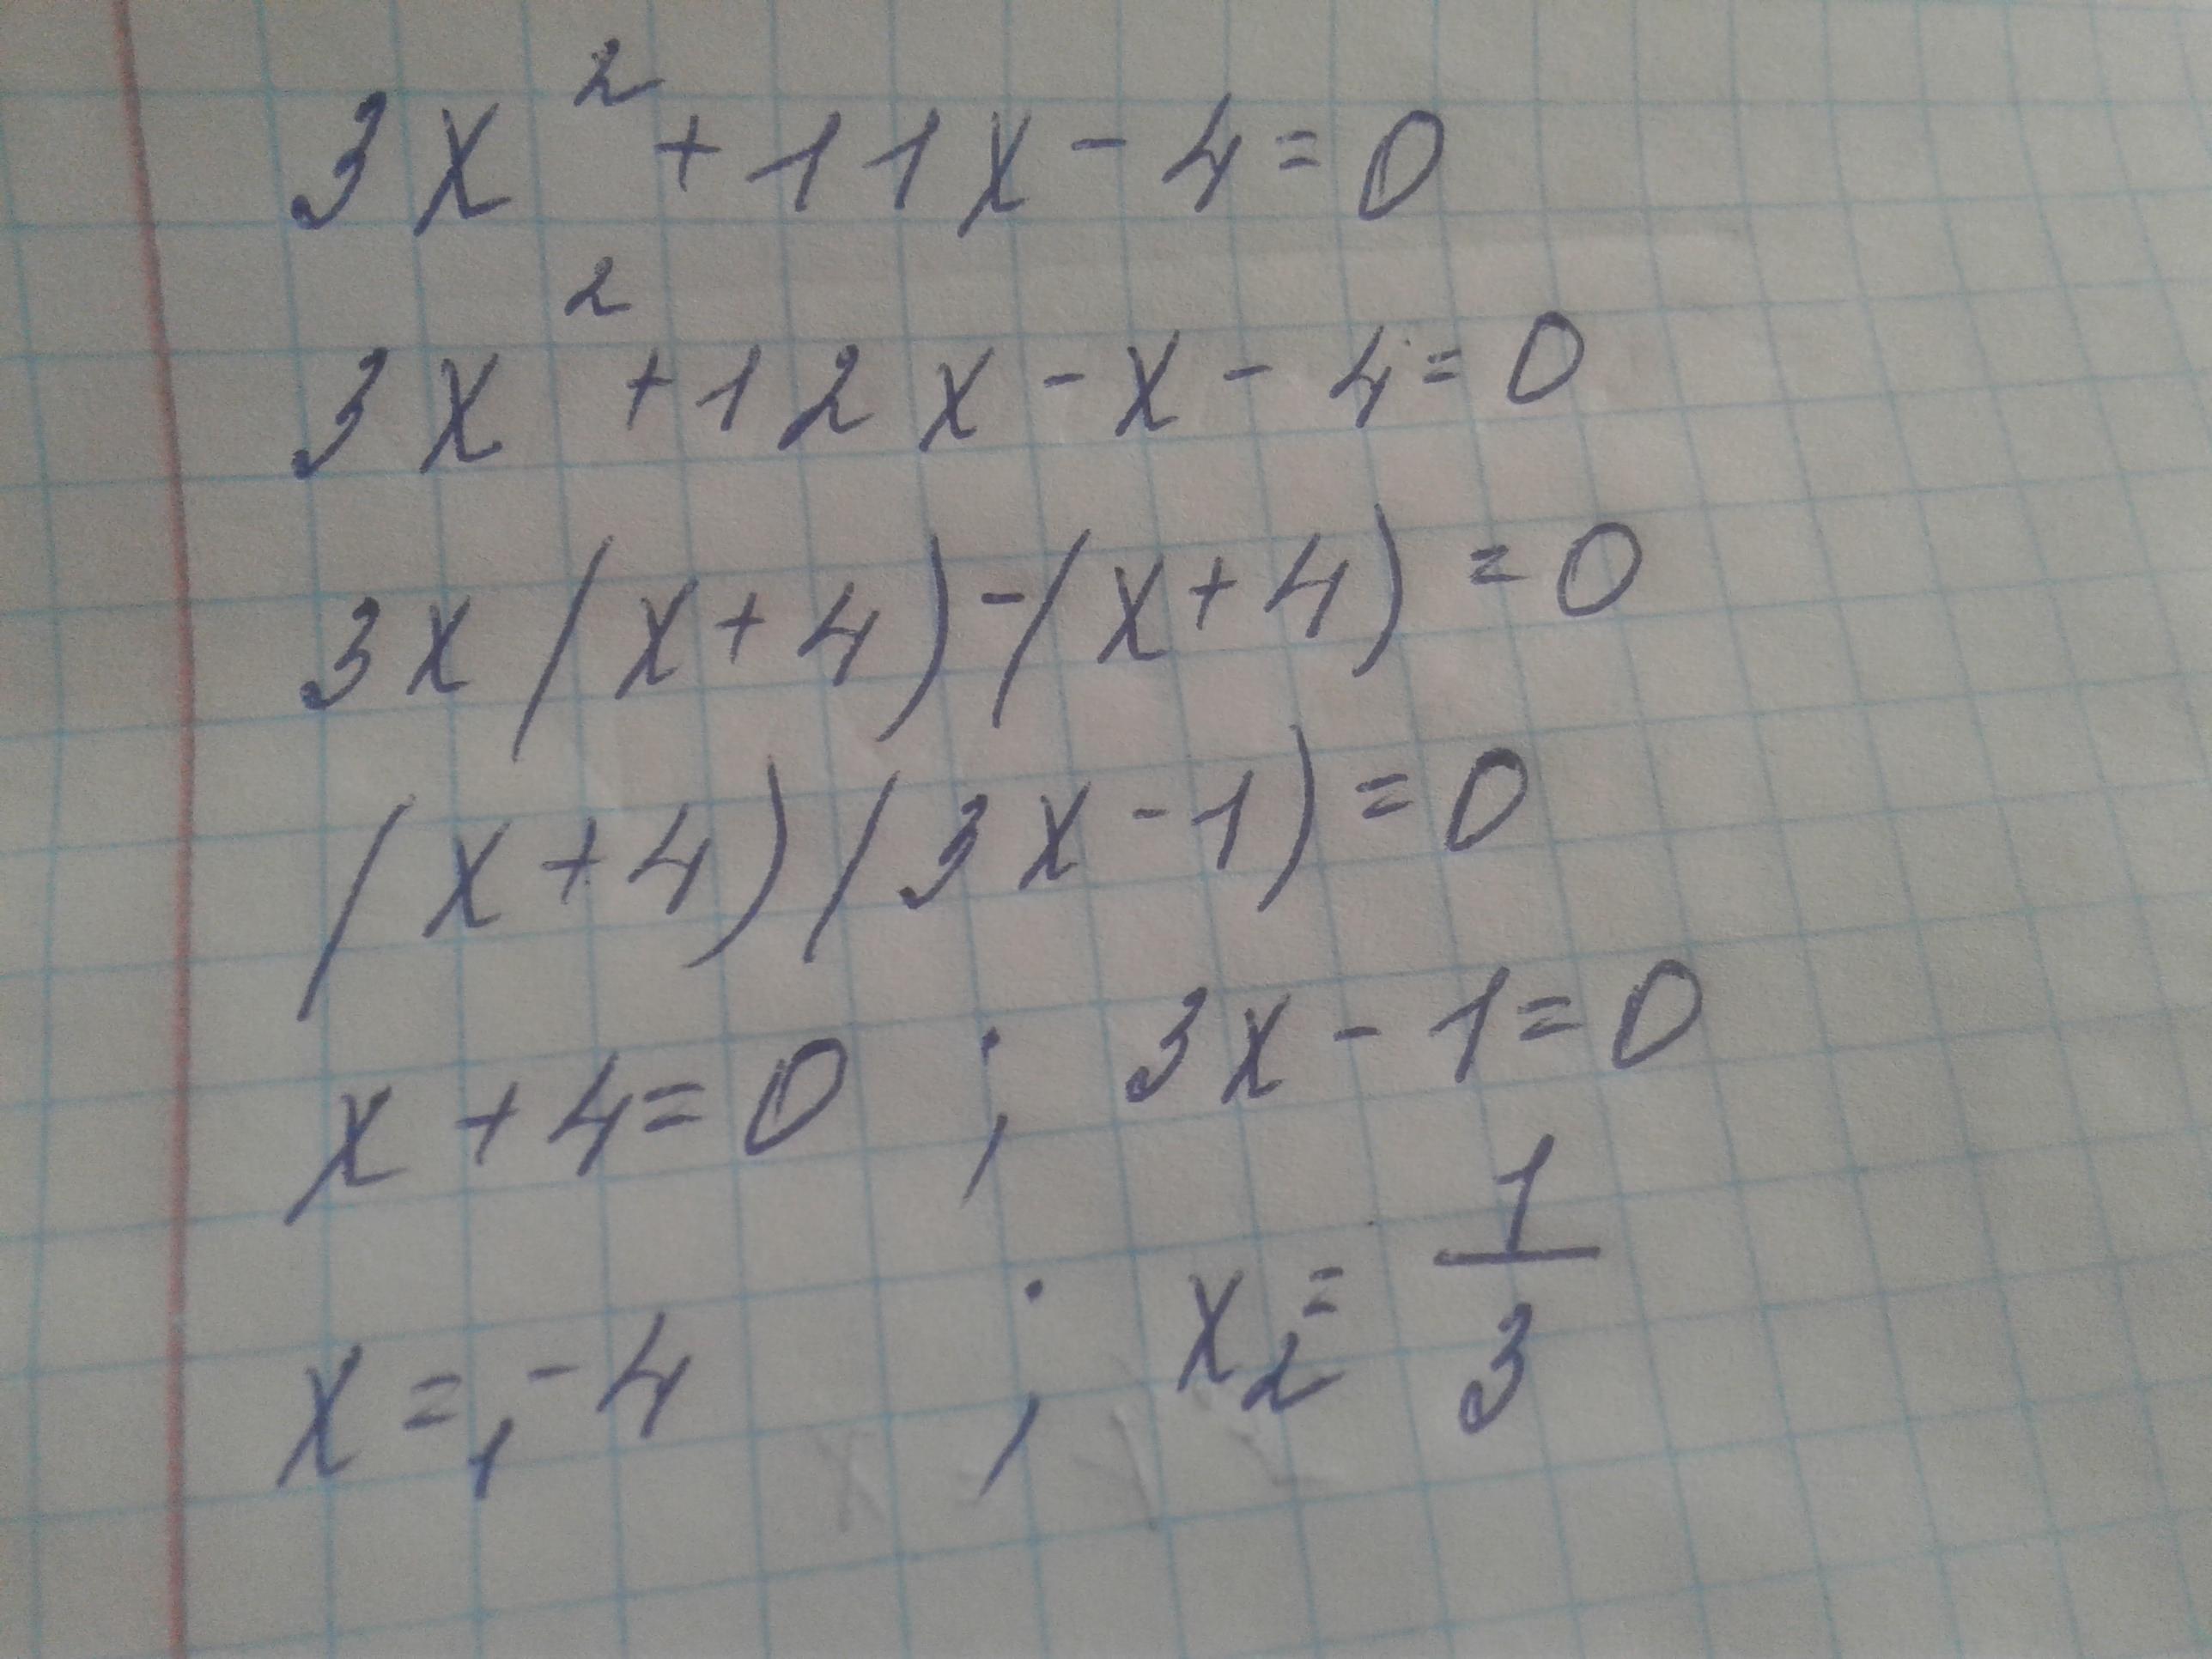 3x² + 11x - 4 = 0
3x² + 12x - x - 4 = 0
3x(x + 4) - (x + 4) = 0
(x + 4)(3x - 1) = 0
x + 4 = 0 ; 3x - 1 = 0
x₁ = -4 ; x₂ = 1/3